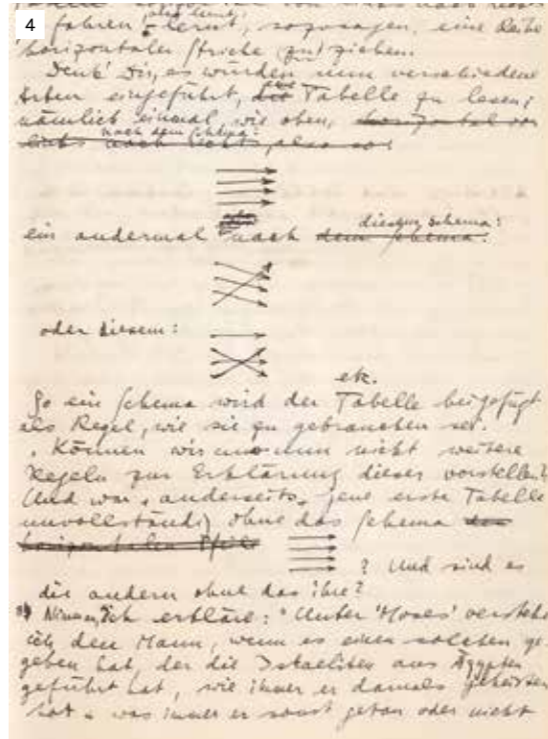 4
fahren lernt, sozusagen, eine Reihe
horizontaler Striche zu ziehen.
Denk' Dir, es würden nun verschiedene
Arten eingeführt, die Tabelle zu lesen;
nämlich einmal, wie oben, horizontal von
links nach rechts, also so:
nach dem Schema:
ein andermal nach dem Schema:
diesem Schema:
oder diesem:
etc.
So ein Schema wird der Tabelle beigefügt
als Regel, wie sie zu gebrauchen sei.
Können wir uns nun nicht weitere
Regeln zur Erklärung dieser vorstellen?
Und war, anderseits, jene erste Tabelle
unvollständig ohne das Schema der
horizontalen Pfeile ? Und sind es
die anderen ohne das ihre?
Ich erkläre: "Unter 'Moses' verstehe
ich den Mann, wenn es einen solchen ge-
geben hat, der die Israeliten aus Ägypten
geführt hat, wie immer er damals geheissen
hat & was immer er sonst getan oder nicht